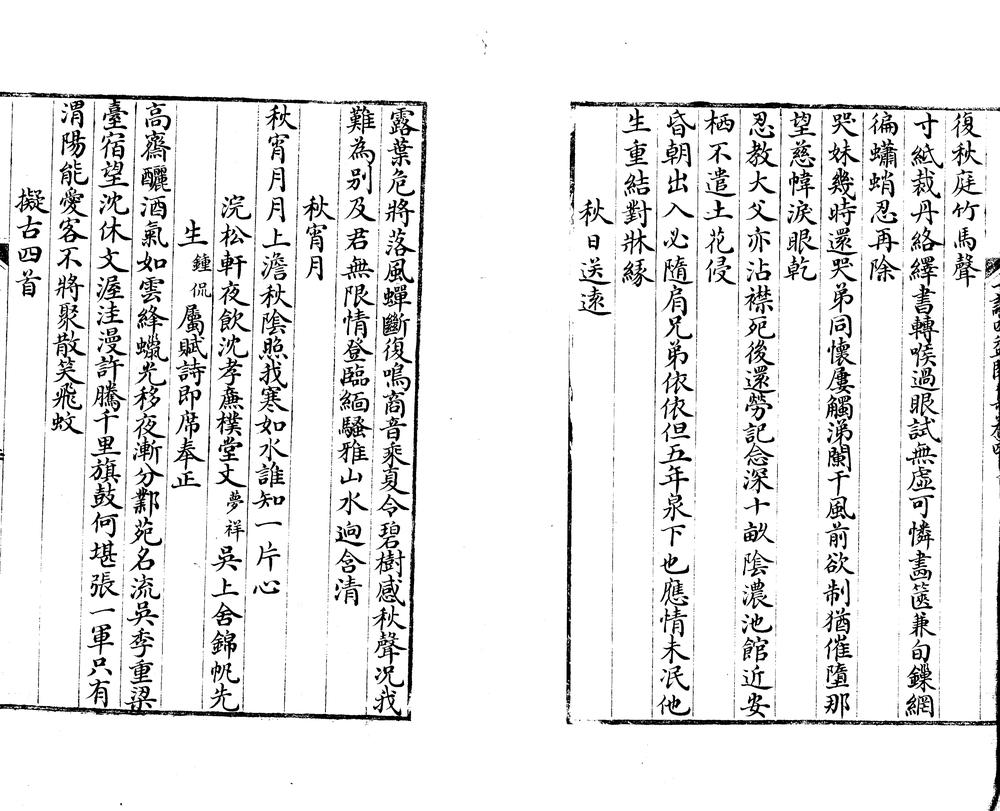 復秋庭竹馬聲
寸紙裁丹絡繹書轉喉過眼試無虛可憐畵篋兼句鏁網
徧蠨蛸忍再除
哭妹幾時還哭弟同懷屢觸涕闌干風前欲制猶催墮那
望慈幃淚眼乾
忍教大父亦沾襟死後還勞記念深十畝陰濃池館近安
栖不遣土花侵
昏朝出入必隨肩兄弟依依但五年泉下也應情未泯他
生重結對牀緣
秋日送遠
露葉危將落風蟬斷復鳴商音乘夏令碧樹感秋聲况我
難為别及君無限情登臨緬騷雅山水逈含清
秋宵月
秋宵月月上澹秋陰照我寒如水誰知一片心
浣松軒夜飲沈孝亷樸堂丈夢祥吳上舍錦帆先
生鍾侃屬賦詩即席奉正
高齋釃酒氣如雲絳蠟光移夜漸分鄴苑名流吳季重梁
臺宿望沈休文渥洼漫許騰千里旗鼓何堪張一軍只有
渭陽能愛客不將聚散笑飛蚊
擬古四首